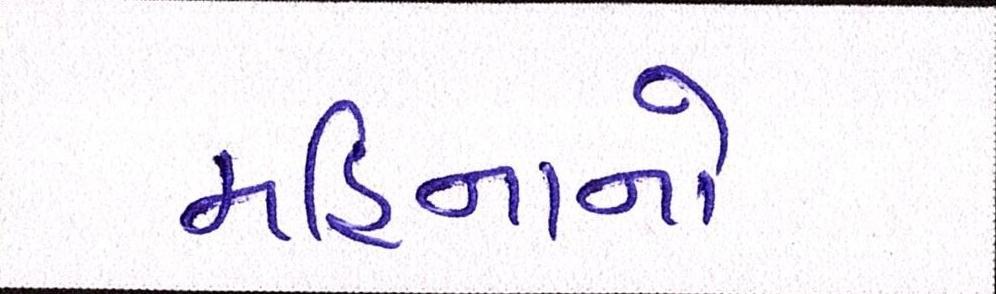 મહિનાનો